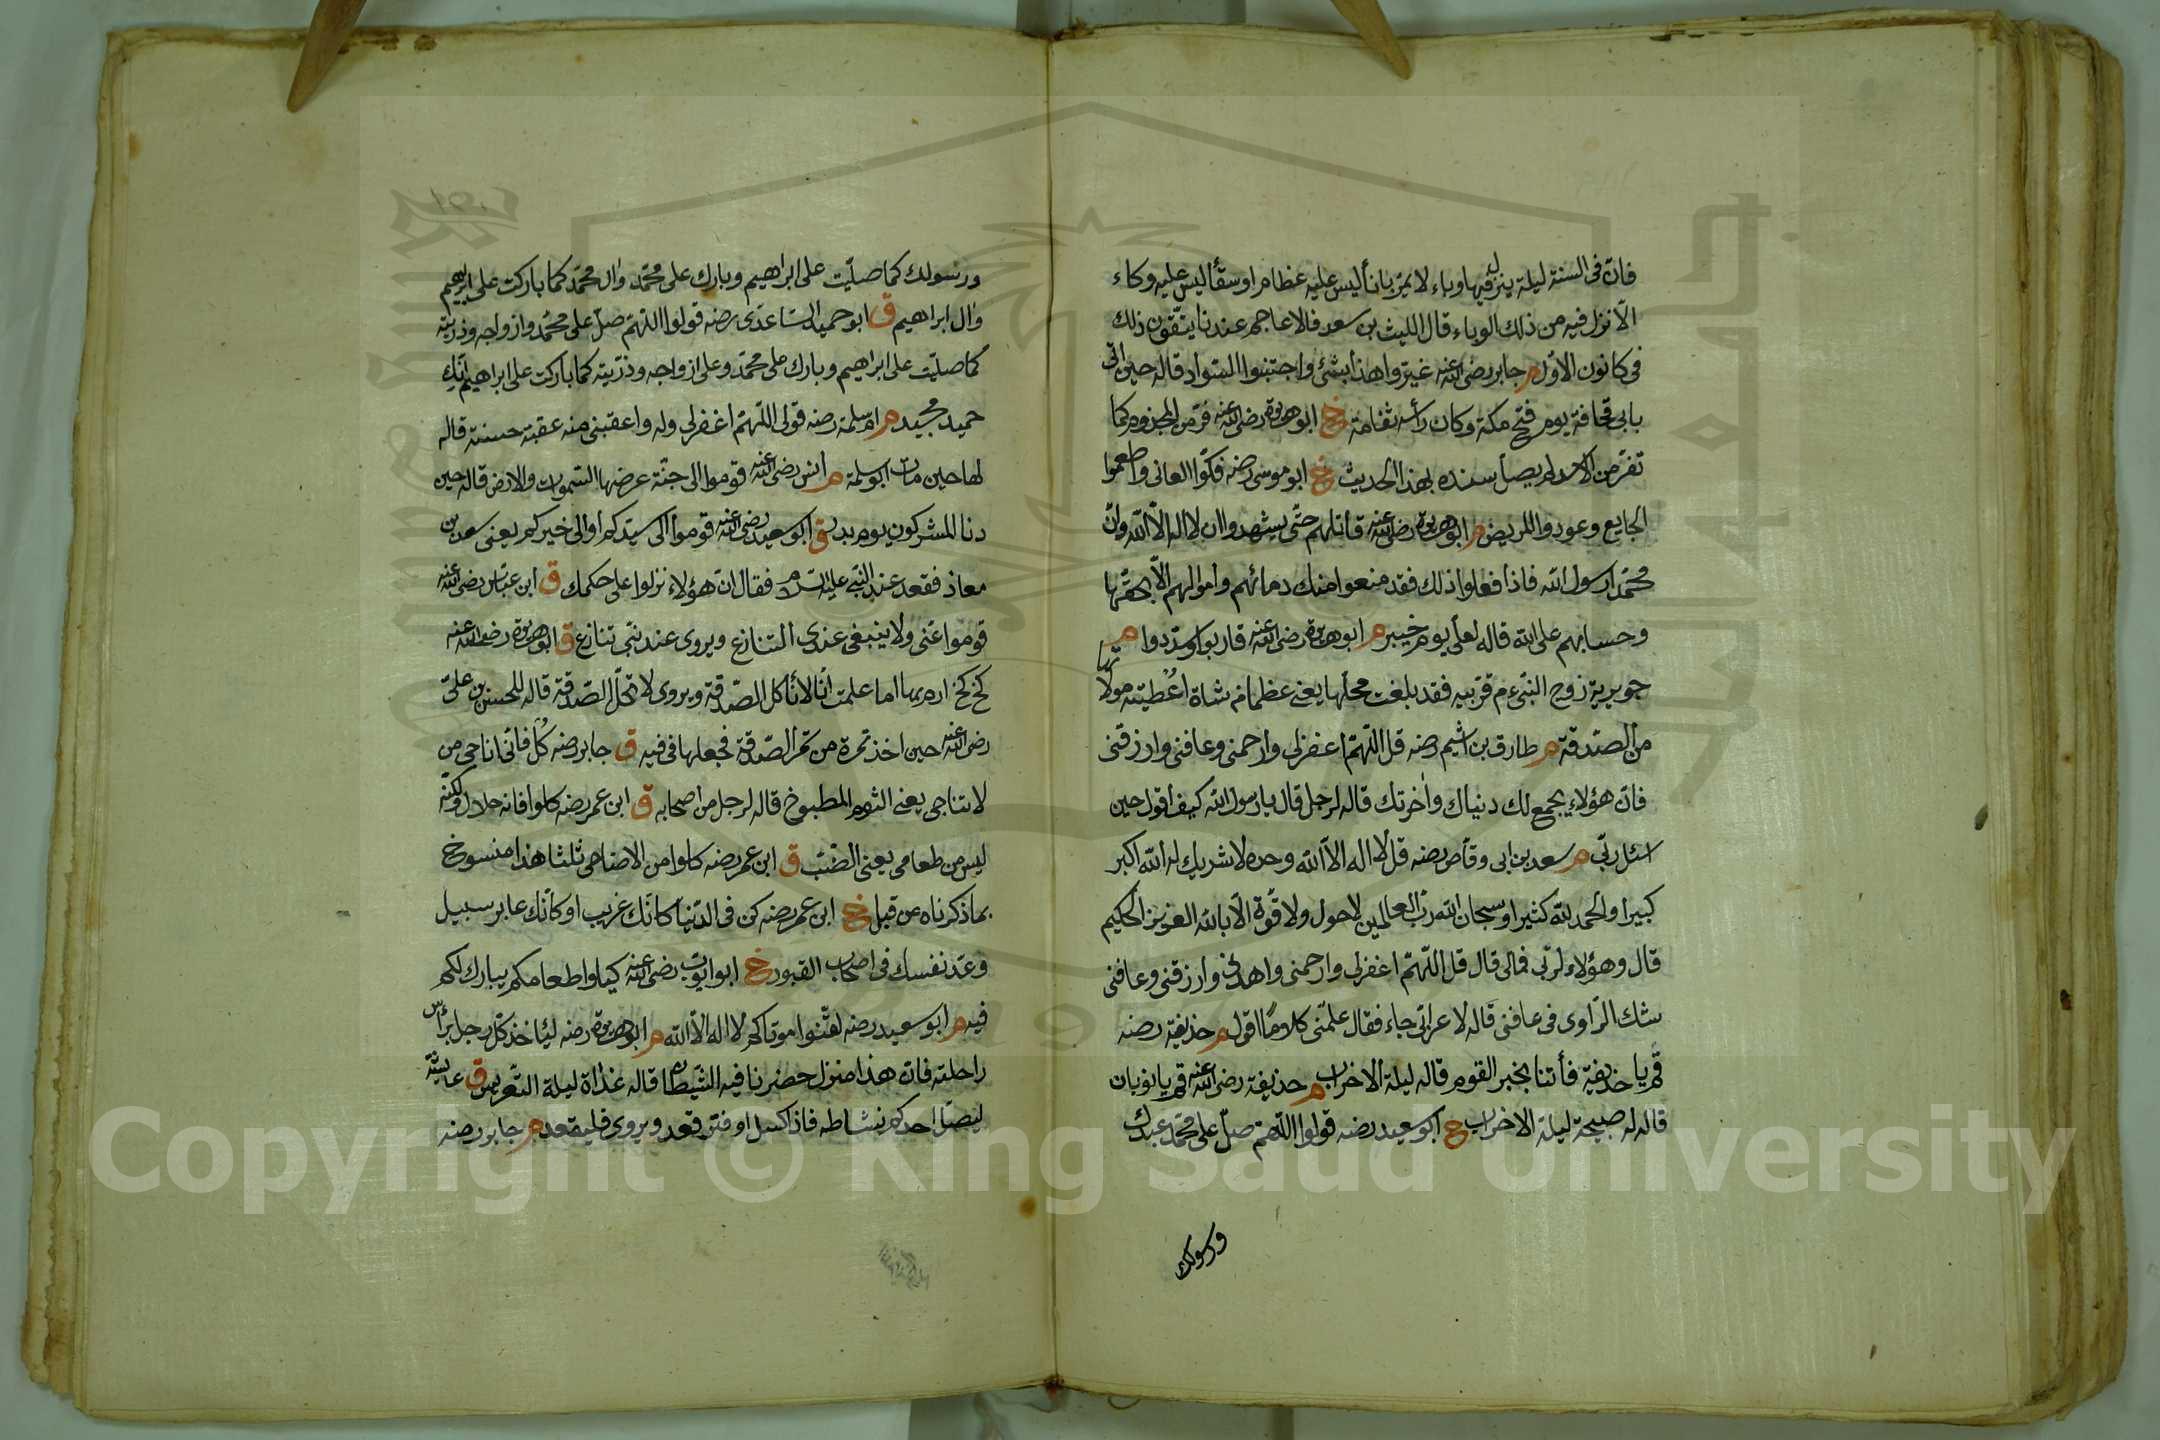 فان فى السنة ليلة ينزل فيها وباء لا يمرّ باناء ليس عليه غطاء او سقاء ليس عليه وكاء
الّا نزل فيه من ذلك الوباء قال الليث بن سعد فالاعاجم عندنا يتّقون ذلك
فى كانون الاوّل م جابر رضى الله عنه غيّروا هذا بشئ واجتنبوا السّواد قاله حين اتى
بابى قحافة يوم فتح مكة وكان رأسه ثغامة خ ابو هريرة رضى الله عنه فرّ من المجزوم كما
تفرّ من الاسد لم يصل سنده بهذا الحديث خ ابو موسى رضه فكّوا العانى واطعموا
الجايع وعودوا المريض م ابو هريرة رضى الله عنه قاتلهم حتّى يشهدوا ان لا اله الّا الله وانّ
محمّدا رسول الله فاذا فعلوا ذلك فقد منعوا منك دمائهم واموالهم الّا بحقّها
وحسابهم على الله قاله لعلى يوم خيبر م ابو هريرة رضى الله عنه قاربوا وسدّدوا م
جويرية زوج النبىّ م قرّبيه فقد بلغت محلّها يعنى عظما من شاة اُعُطيته مولاتها
من الصّدقة م طارق بن اشيم رضه قل اللّهمّ اغفرلى وارحمنى وعافنى وارزقنى
فانّ هؤلاء يجمع لك دنياك واٰخرتك قاله لرجل قال يا رسول الله كيف اقول حين
اسئل ربّى م سعد بن ابى وقاص رضه قل لا اله الّا الله وحده لا شريك له الله اكبر
كبيرا والحمد لله كثيرا وسبحان الله ربّ العالمين لا حول ولا قوّة الّا بالله العزيز الحكيم
قال وهؤلاء لربّى فمالى قال قل اللّهمّ اغفرلى وارحمنى واهدنى وارزقنى وعافنى
شك الرّاوى فى عافنى قاله لاعرابّى جاء فقال علّمنى كلامًا اقول م حذيفة رضه
قم يا حذيفة فأتنا بخبر القوم قاله ليلة الاحزاب م حذيفة رضى الله عنه قم يا نومان
قاله له صبيحة ليلة الاحزاب خ ابو سعيد رضه قولوا اللّهمّ صلّ على محمّد عبدك
ورسولك
ورسولك كما صلّيت على ابراهيم وبارك على محمّد واٰل محمّد كما باركت على ابراهيم
واٰل ابراهيم ق ابو حميد السّاعدى رضه قولوا اللّهمّ صلّ على محمّد وازواجه وذريته
كما صلّيت على ابراهيم وبارك على محمّد وعلى ازواجه وذرّيته كما باركت على ابراهيم انّك
حميد مجيد م امّ سلمة رضه قولى اللّهمّ اغفرلى وله واعقبنى منه عقبة حسنة قاله
لها حين مات ابو سلمة م انس رضى الله عنه قوموا الى جنّة عرضها السّموات والارض قاله حين
دنا للمشركون يوم بدر ق ابو سعيد رضى الله عنه قوموا الى سيّدكم او الى خيركم يعنى سعد بن
معاذ فقعد عند النّبى عليه السّلام فقال انّ هؤلاء نزلوا على حكمك ق ابن عبّاس رضى الله عنه
قوموا عنى ولا ينبغى عندى التنازع ويروى عند نبّى تنازع ق ابو هريرة رضى الله عنه
كخ كخ ارم بها اما علمت انّا لا نأكل الصّدقة ويروى لا تحلّ الصّدقة قاله للحسن بن علىّ
رضى الله عنه حين اخذ تمرة من تمر الصّدقة فجعلها فى فيه ق جابر رضه كُل فانى اناجى من
لا تناجى يعنى الثوم المطبوخ قاله لرجل من اصحابه ق ابن عمر رضه كلوا فانه حلال ولكنّه
ليس من طعامى يعنى الضّبّ ق ابن عمر رضه كلوا من الاضاحى ثلثا هذا منسوخ
بما ذكرناه من قبل خ ابن عمر رضه كن فى الدّنيا كانّك غريب او كانّك عابر سبيل
وعدّ نفسك فى اصحاب القبور خ ابو ايّوب رضى الله عنه كيلوا طعامكم يبارك لكم
فيه م ابو سعيد رضه لقّنوا موتاكم لا اله الّا الله م ابو هريرة رضه ليأخذ كلّ رجل برأس
راحلته فان هذا منزل حضرنا فيه الشّيطان قاله غداة ليلة التّعريس ق عايشة
ليصلّ احدكم نشاطه فاذا كسل او فتر قعد ويروى فليقعد م جابر رضه
Copyright © King Saud University